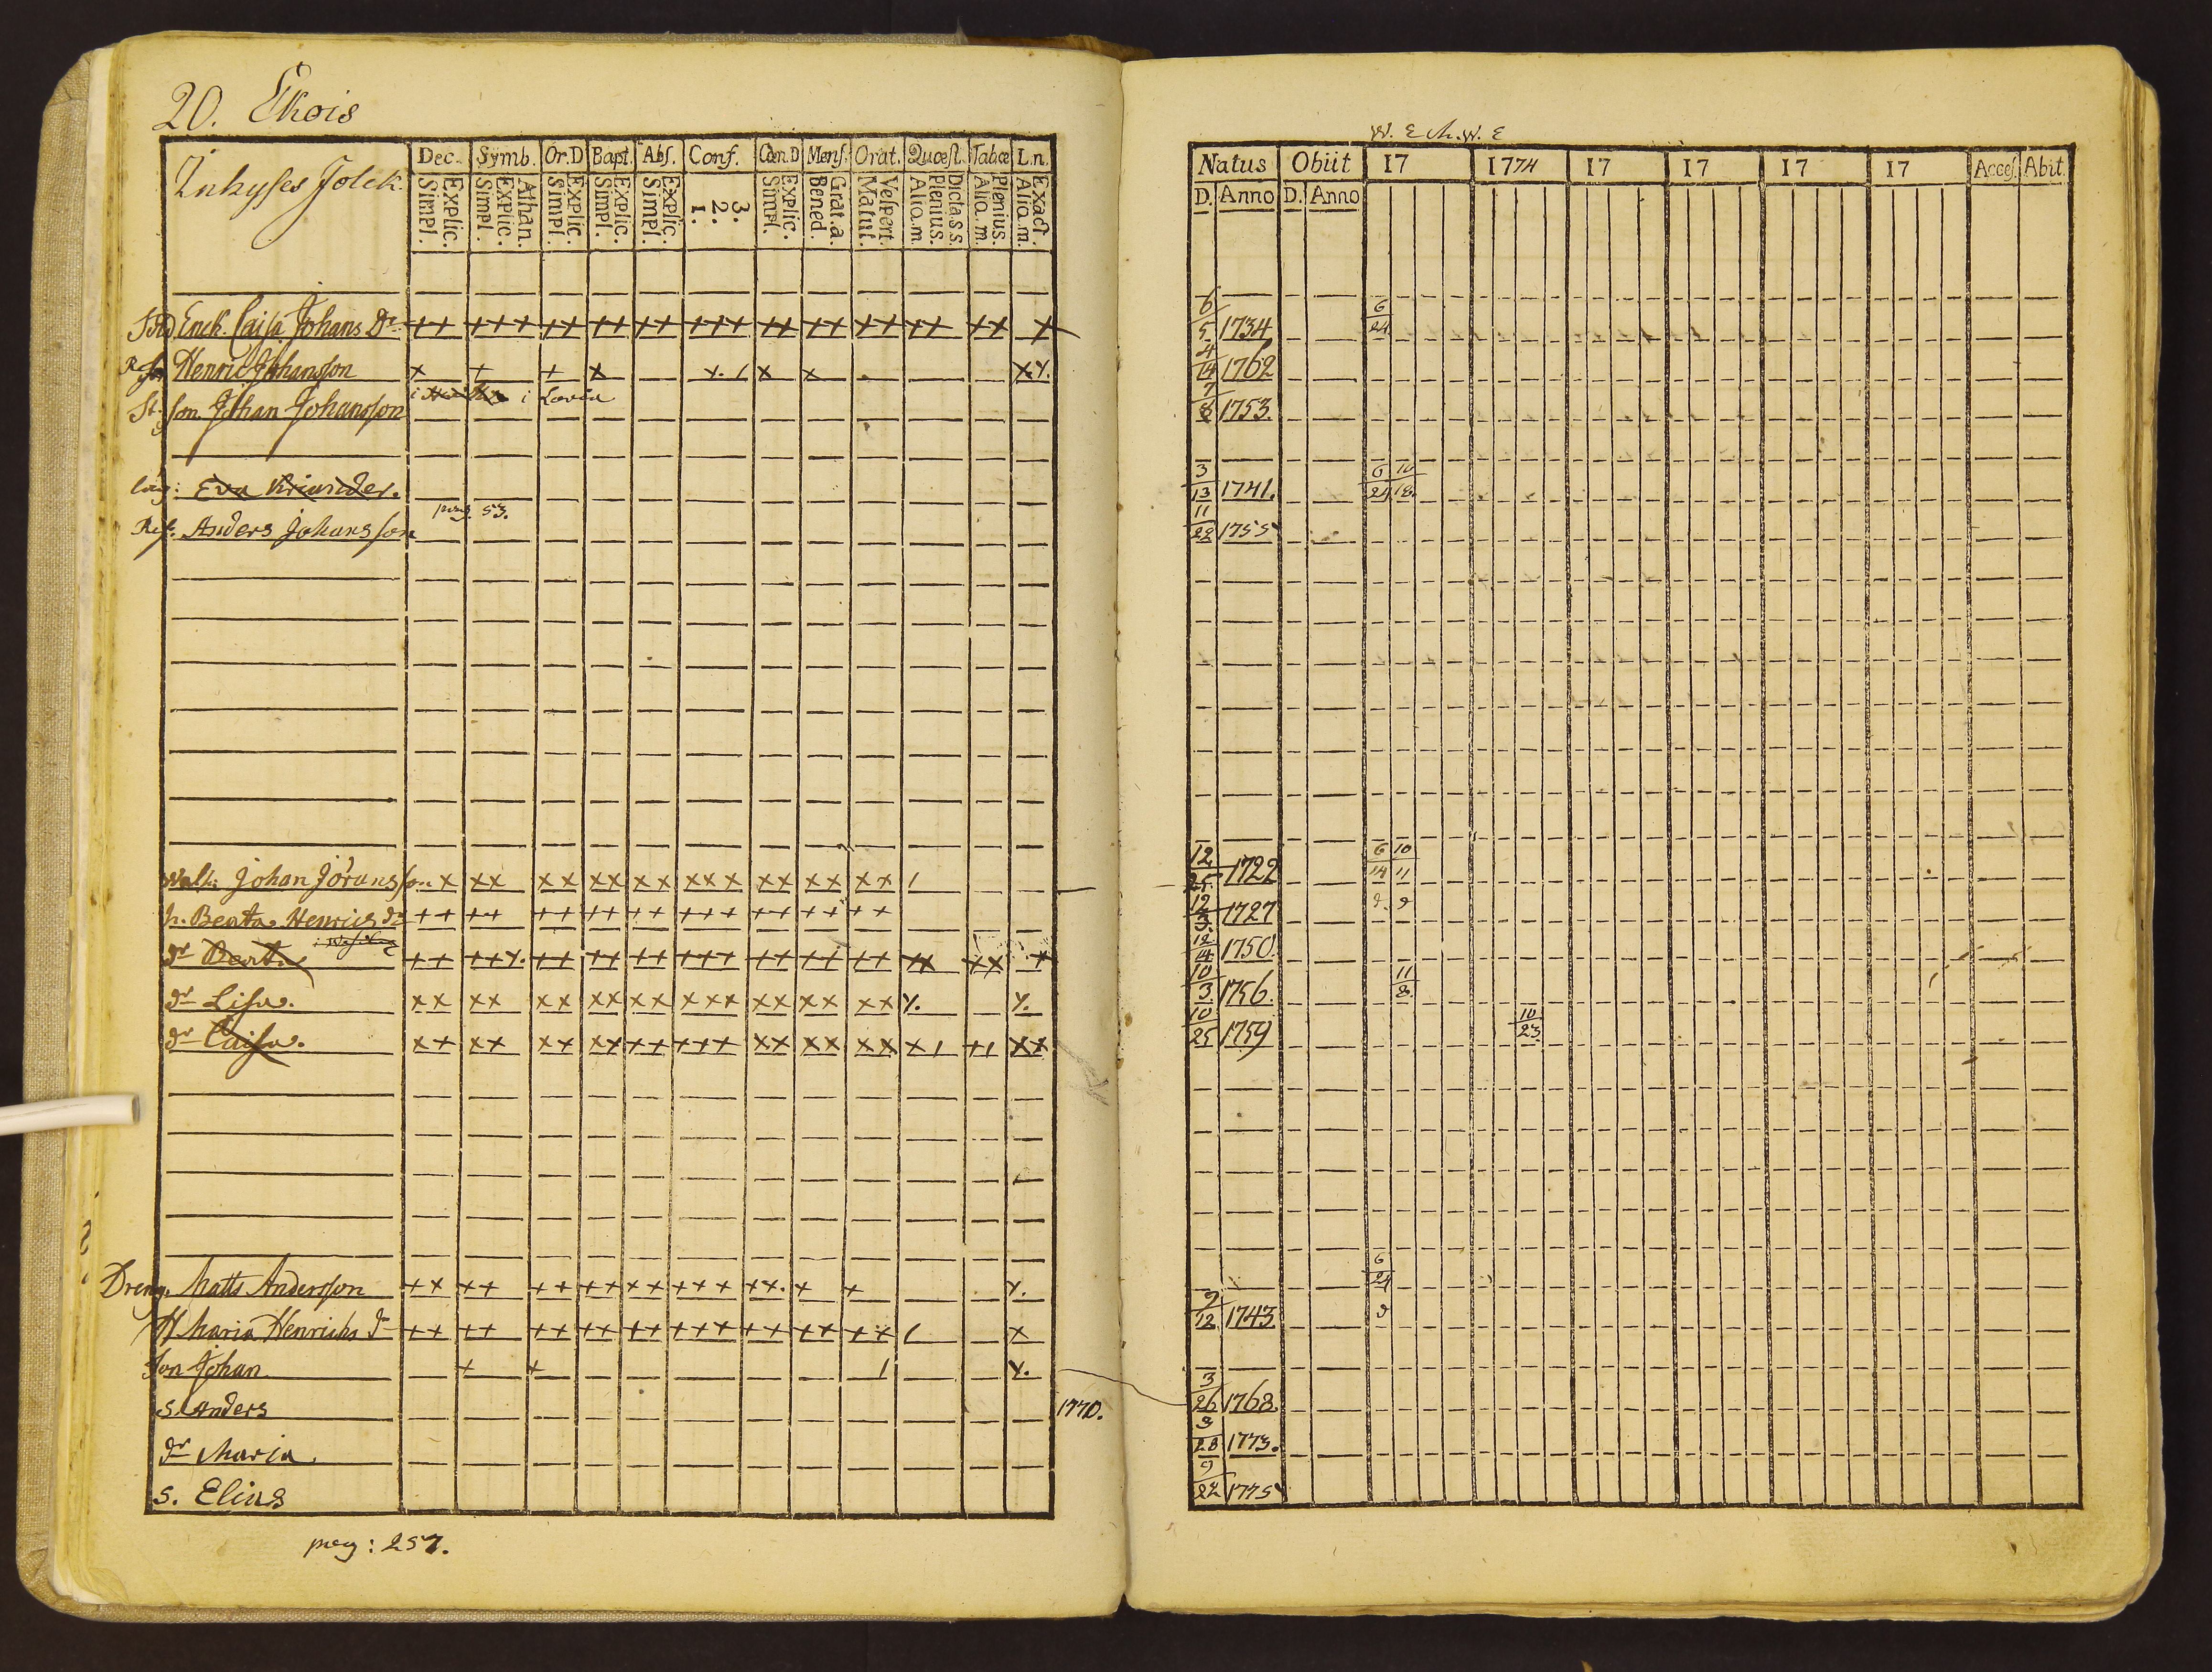 20. Ekois
Inhyses Folck.
Dec. Symb. Or.D Bapt. Abs. Conf. Cœn.D Mens. Orat. Quæst. Tab.œ L.n.
Simpl. Explic. Simpl. Explic. Athan. Simpl. Explic. Simpl. Explic. Simpl. Explic. 1. 2. 3. Simpl. Explic. Bened. Grat.a. Matut. Vespert. Aliq.m. Plenius. Dicta.s.s. Aliq.m. Plenius. Aliq.m. Exact.
Enck. Caisa Johans Dr ++ +++ ++ ++ ++ +++ ++ ++ ++ ++ ++ +
Henric Johansson x + + x x x x
St. son Johan Johansson i Lovisa
Eva Kriander.
Anders Johansson pag. 53.
Johan Jöransson x xx xx xx xx xxx xx xx xx /
h. Beata Henrics dr ++ ++ ++ ++ ++ +++ ++ ++ ++
dr Beat. ++ ++ ++ ++ +++ ++ ++ ++ ++ xx +
dr Lisa. xx xx xx xx xx xxx xx xx xx
dr Caisa. x+ xx xx xx ++ +++ xx xx xx x/ +/ xx
Dreng. Matts Andersson ++ ++ ++ ++ ++ +++ ++. + +
H Maria Henrichs dr ++ ++ ++ ++ ++ +++ ++ ++ ++ / x
Son Johan + + /
s. Anders 1770.
dr Maria.
s. Elias
pag: 257.
Natus Obiit 17 1774 17 17 17 17 Acces. Abit.
D. Anno D. Anno
6/5 1734 6/24
4/14 1762
7/8 1753.
3/13 1741. 6/24 10/18.
11/22 1755
12/25 1722 6/14 10/11
12/3. 1727
12/14 1750.
10/3. 1756. 11/8.
10/25 1759 10/23
6/24
9/12 1743
3/26 1768.
3/28 1773.
9/22 1775